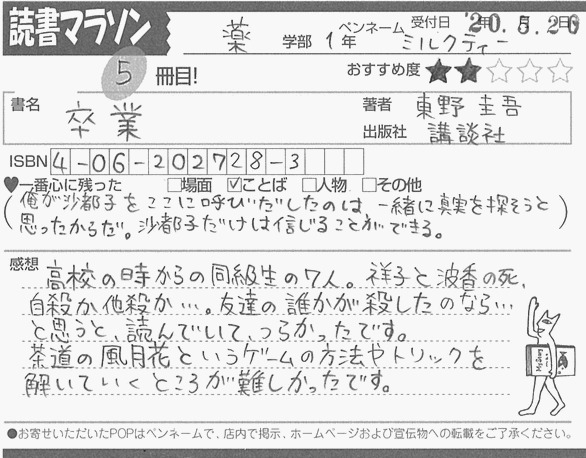 読書マラソン
薬 学部 1年 ペンネーム ミルクティー 受付日 '20.5.26
5 冊目!
おすすめ度 ★★☆☆☆
書名 卒業
著者 東野圭吾
出版社 講談社
ISBN 4-06-202728-3
♥一番心に残った □場面 ☑ことば □人物 □その他
(俺が沙都子をここに呼びだしたのは、一緒に真実を探そうと
思ったからだ。沙都子だけは信じることができる。)
感想
高校の時からの同級生の7人。祥子と波香の死、
自殺か他殺か…。友達の誰かが殺したのなら…
と思うと、読んでいて、つらかったです。
茶道の風月花というゲームの方法やトリックを
解いていくところが難しかったです。
●お寄せいただいたPOPはペンネームで、店内で掲示、ホームページおよび宣伝物への転載をご了承ください。